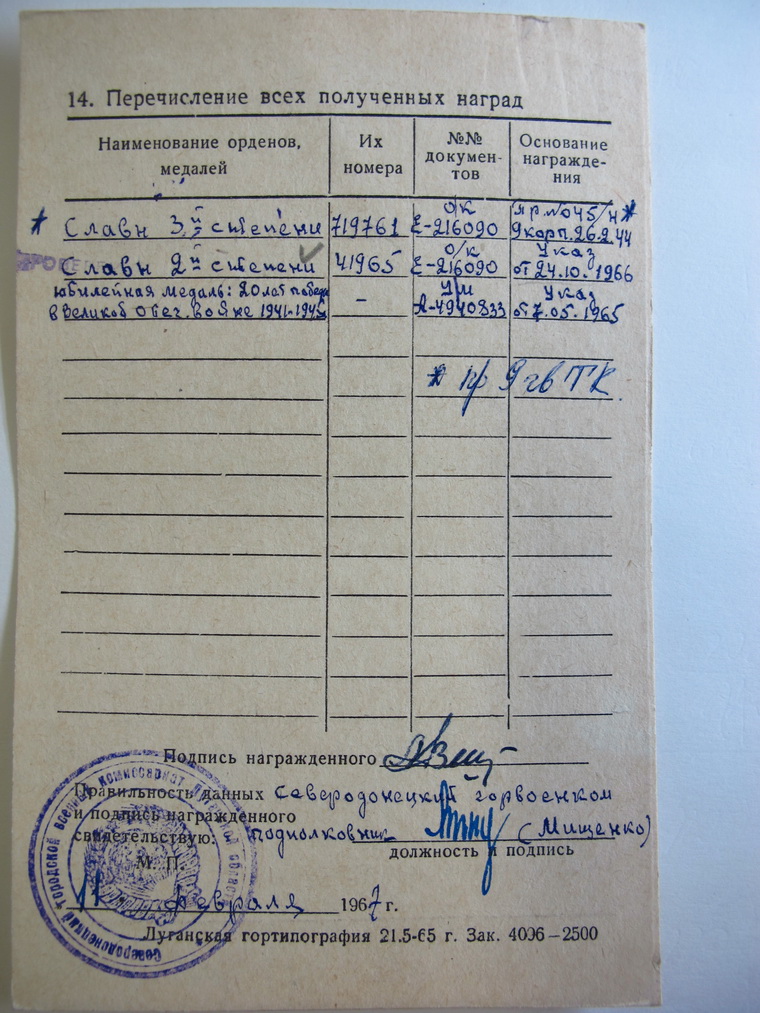 14. Перечисление всех полученных наград
Наименование орденов, медалей
Их номера
№№ докумен-тов
Основание награжде-ния
* Славы 3й степени 719761 о/к Е-216090 пр. №045/н * 9 корп. 26.2.44
Славы 2й степени 41965 о/к Е-216090 Указ от 24.10.1966
Юбилейная медаль: 20 лет победы
в Великой Отег. войне 1941-1945 – УМ А-4940833 Указ от 7.05.1965
* 9 гв ТК.
Подпись награжденного
Правильность данных Северодонецкий горвоенком
и подпись награжденного
свидетельствую: подполковник (Мищенко)
должность и подпись
М. П.
февраля 1967 г.
Луганская гортипография 21.5-65 г. Зак. 4096—2500
Северодонецкий городской военный комиссариат Луганской области